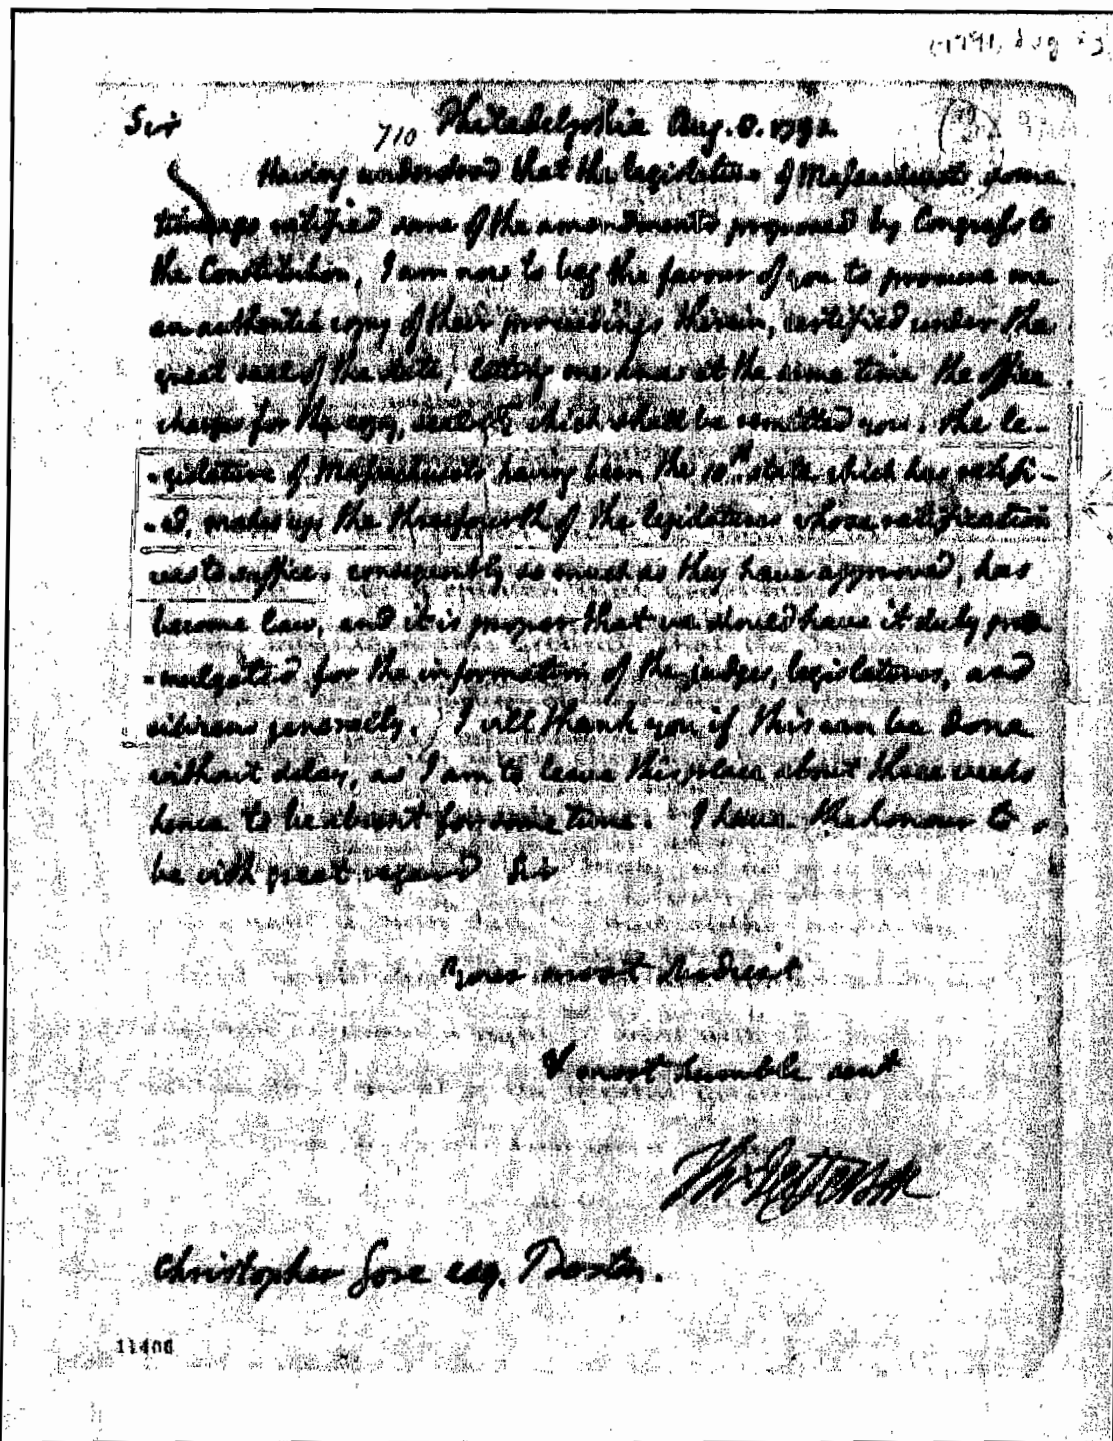 (1791, Aug
Sir
710 Philadelphia Aug. 8. 1791.
Having understood that the legislature of Massachusets some
time ago ratified some of the amendments proposed by Congress to
the Constitution, I am now to beg the favour of you to procure me
an authentic copy of their proceedings therein, certified under the
great seal of the state, letting me know at the same time the office
charges for the copy, seal &c which shall be remitted you. the le-
-gislature of Massachusets having been the 10th. state which has ratifi-
-ed, makes up the threefourth of the legislatures whose ratification
was to suffice. consequently so much as they have approved, has
become law, and it is proper that we should have it duly pro-
-mulgated for the information of the judges, legislatures, and
citizens generally. I will thank you if this can be done
without delay, as I am to leave this place about three weeks
hence to be absent for some time. I have the honour to
be with great regard Sir
Your most obedient
& most humble servt
Th: Jefferson
Christopher Gore esq. Boston.
11408